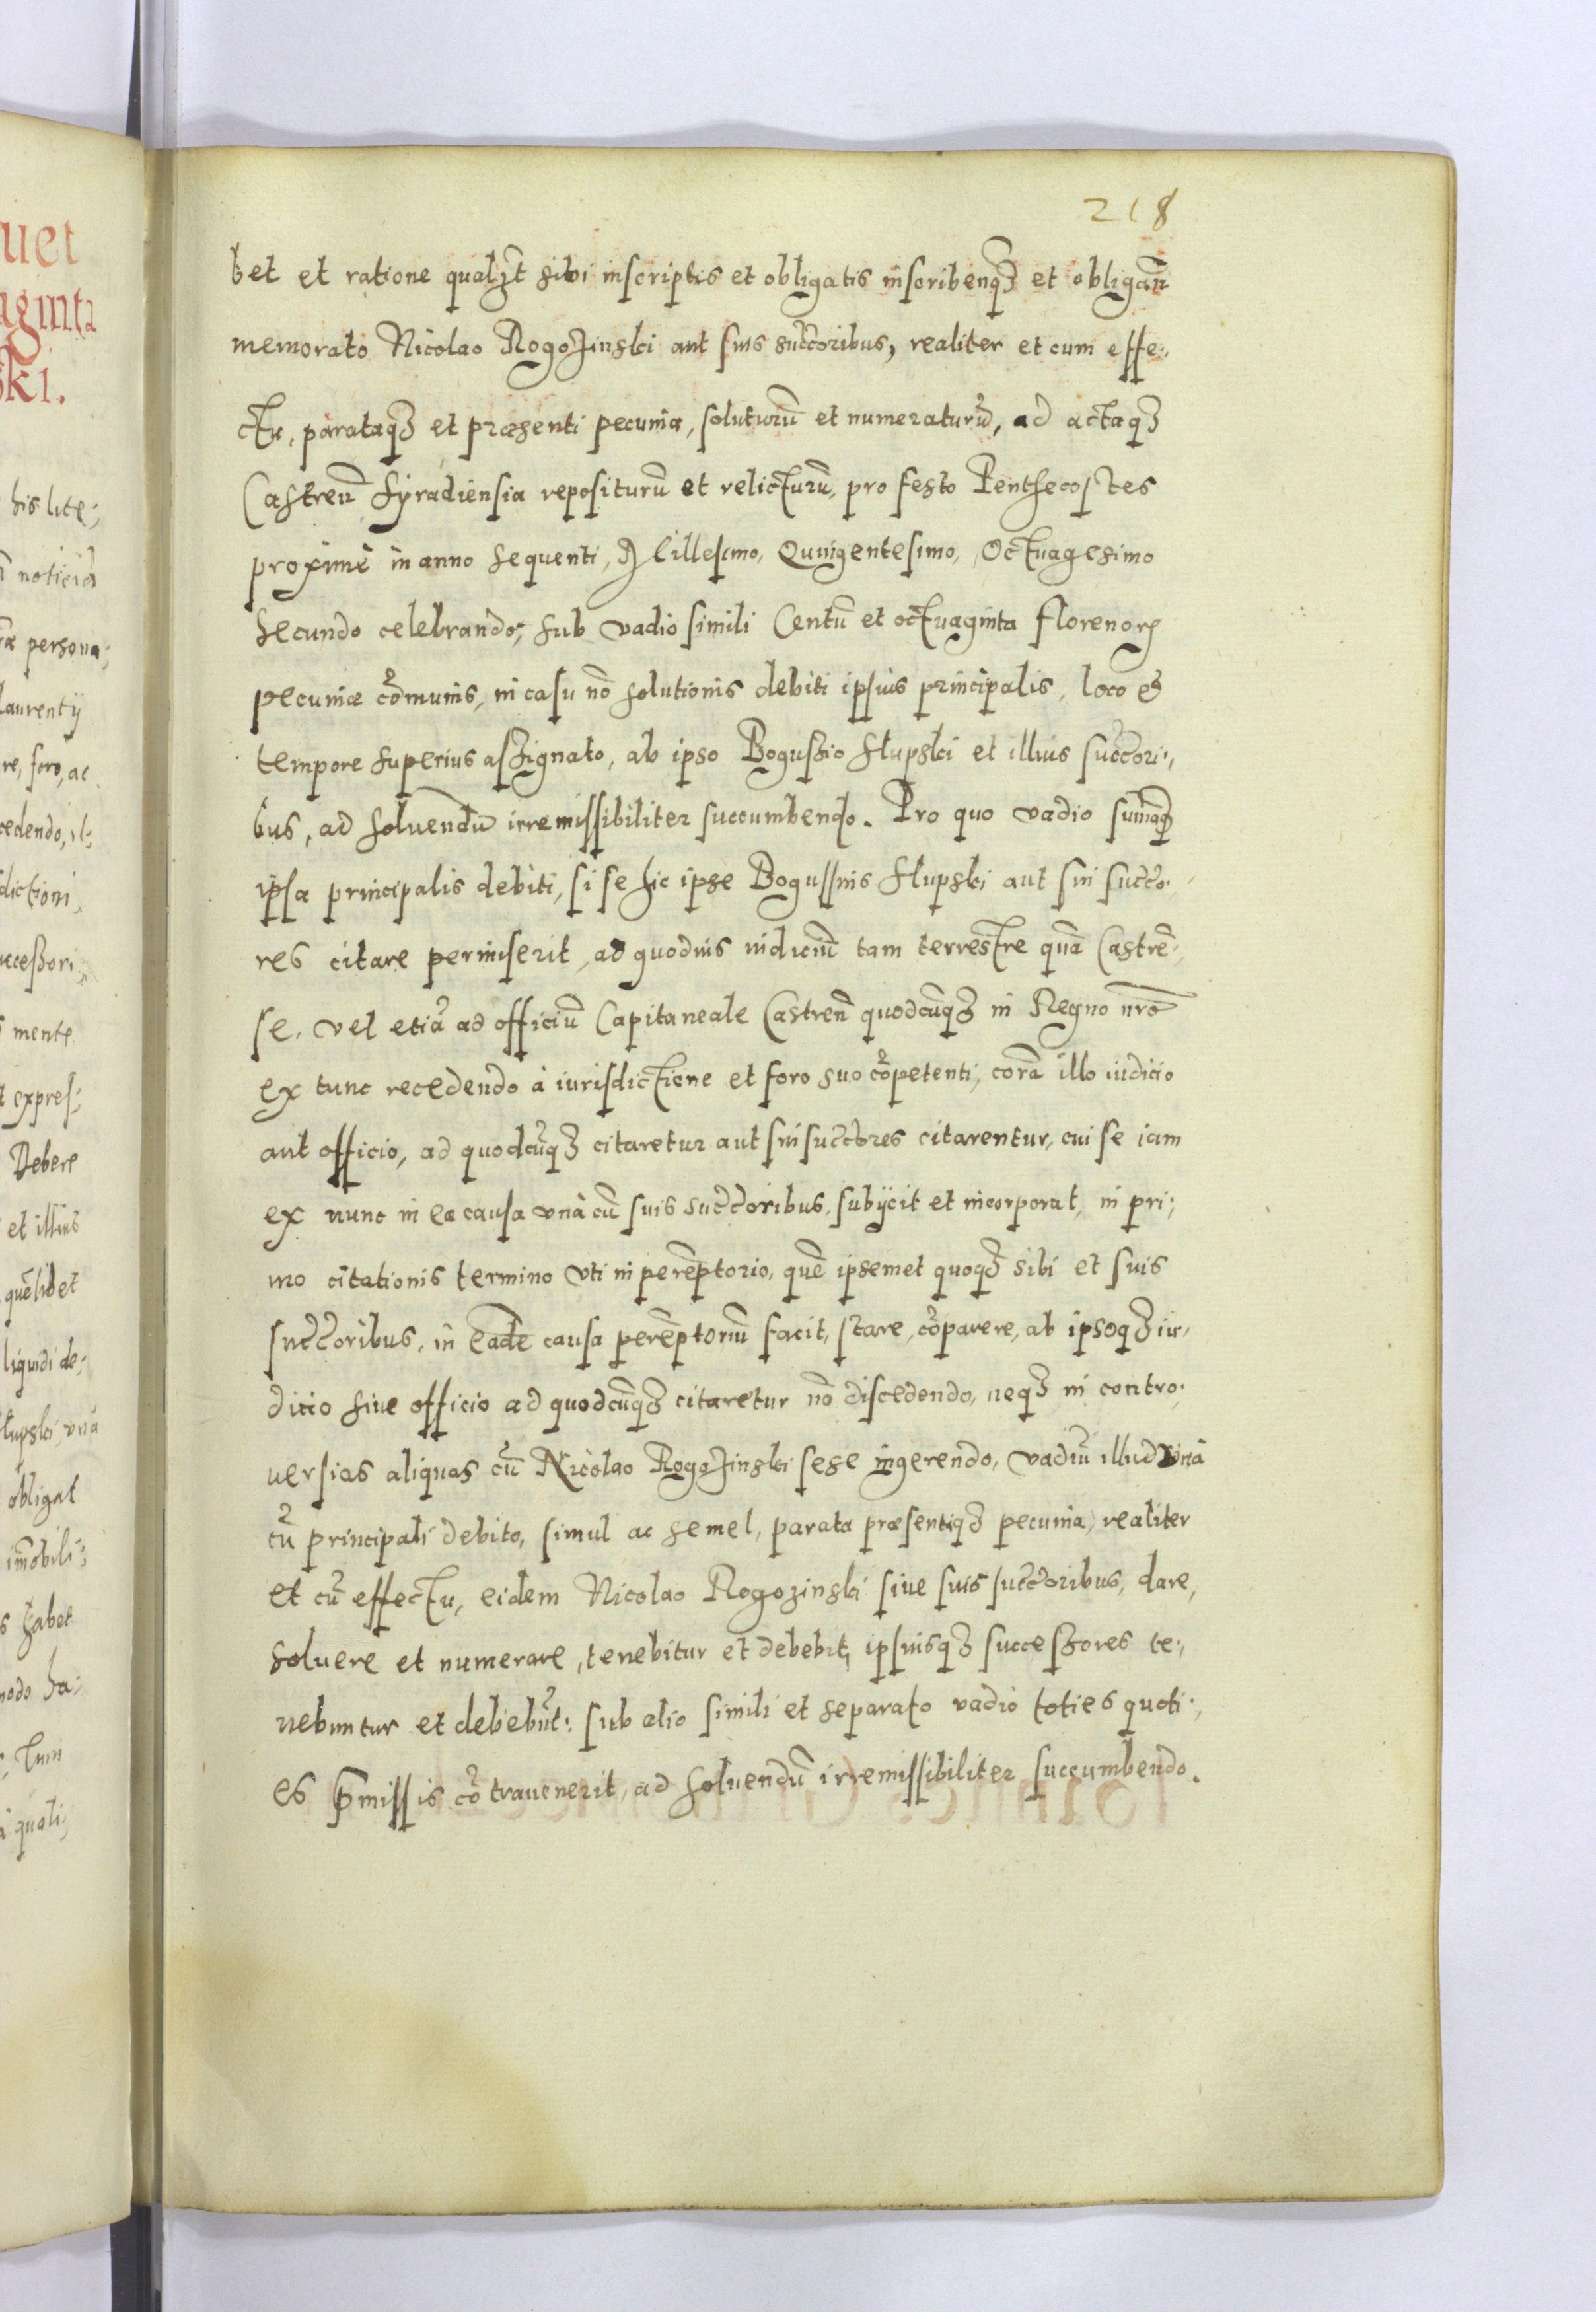 218
bet et ratione qualʒt sibi inscriptis et obligatis inscribenqʒ et obligan̄
memorato Nicolao Rogozinski aut suis succ̄oribus, realiter et cum effe:
ctu, parataqʒ et præsenti pecunia, soluturū et numeraturū, ad actaqʒ
Castren̄ Syradiensia repositurū et relicturū, pro festo Penthecostes
proxime in anno sequenti, Millesimo, Quingentesimo, Octuagesimo
secundo celebrando, sub vadio simili Centū et octuaginta florenorꝝ
pecuniæ cōmunis, in casu nō solutionis debiti ipsius principalis, loco et
tempore superius assignato, ab ipso Bogussio Slupski et illius succ̄ori:
bus, ad soluendū irremissibiliter succumbendo. Pro quo vadio sum̄aqʒ
ipsa principalis debiti, si se hic ipse Bogussius Slupski aut sui succo:
res citare permiserit, ad quoduis iudiciū tam terrestre quā Castrē:
se, vel etiā ad officiū Capitaneale Castren̄ quodcūqʒ in Regno nr̄o
ex tunc recedendo à iurisdictione et foro suo cōpetenti, corā illo iudicio
aut officio, ad quodcūqʒ citaretur aut sui succ̄ores citarentur, cui se iam
ex nunc in ea causa vnà cū suis succ̄oribus, subijcit et incorporat, in pri:
mo citationis termino vti in perēptorio, quē ipsemet quoqʒ sibi et suis
succ̄oribus, in eadē causa perēptoriū facit, stare, cōparere, ab ipsoqʒ iu:
dicio siue officio ad quodcūqʒ citaretur nō discedendo, neqʒ in contro:
uersias aliquas cū Nicolao Rogozinski sese ingerendo, vadiū illud vnà
cū principali debito, simul ac semel, parata præsentiqʒ pecunia, realiter
et cū effectu, eidem Nicolao Rogozinski siue suis succ̄oribus, dare,
soluere et numerare, tenebitur et debebit, ipsiusqʒ successores te:
nebuntur et debebūt: sub alio simili et separato vadio toties quoti:
es p̄missis cōtrauenerit, ad soluendū irremissibiliter succumbendo.